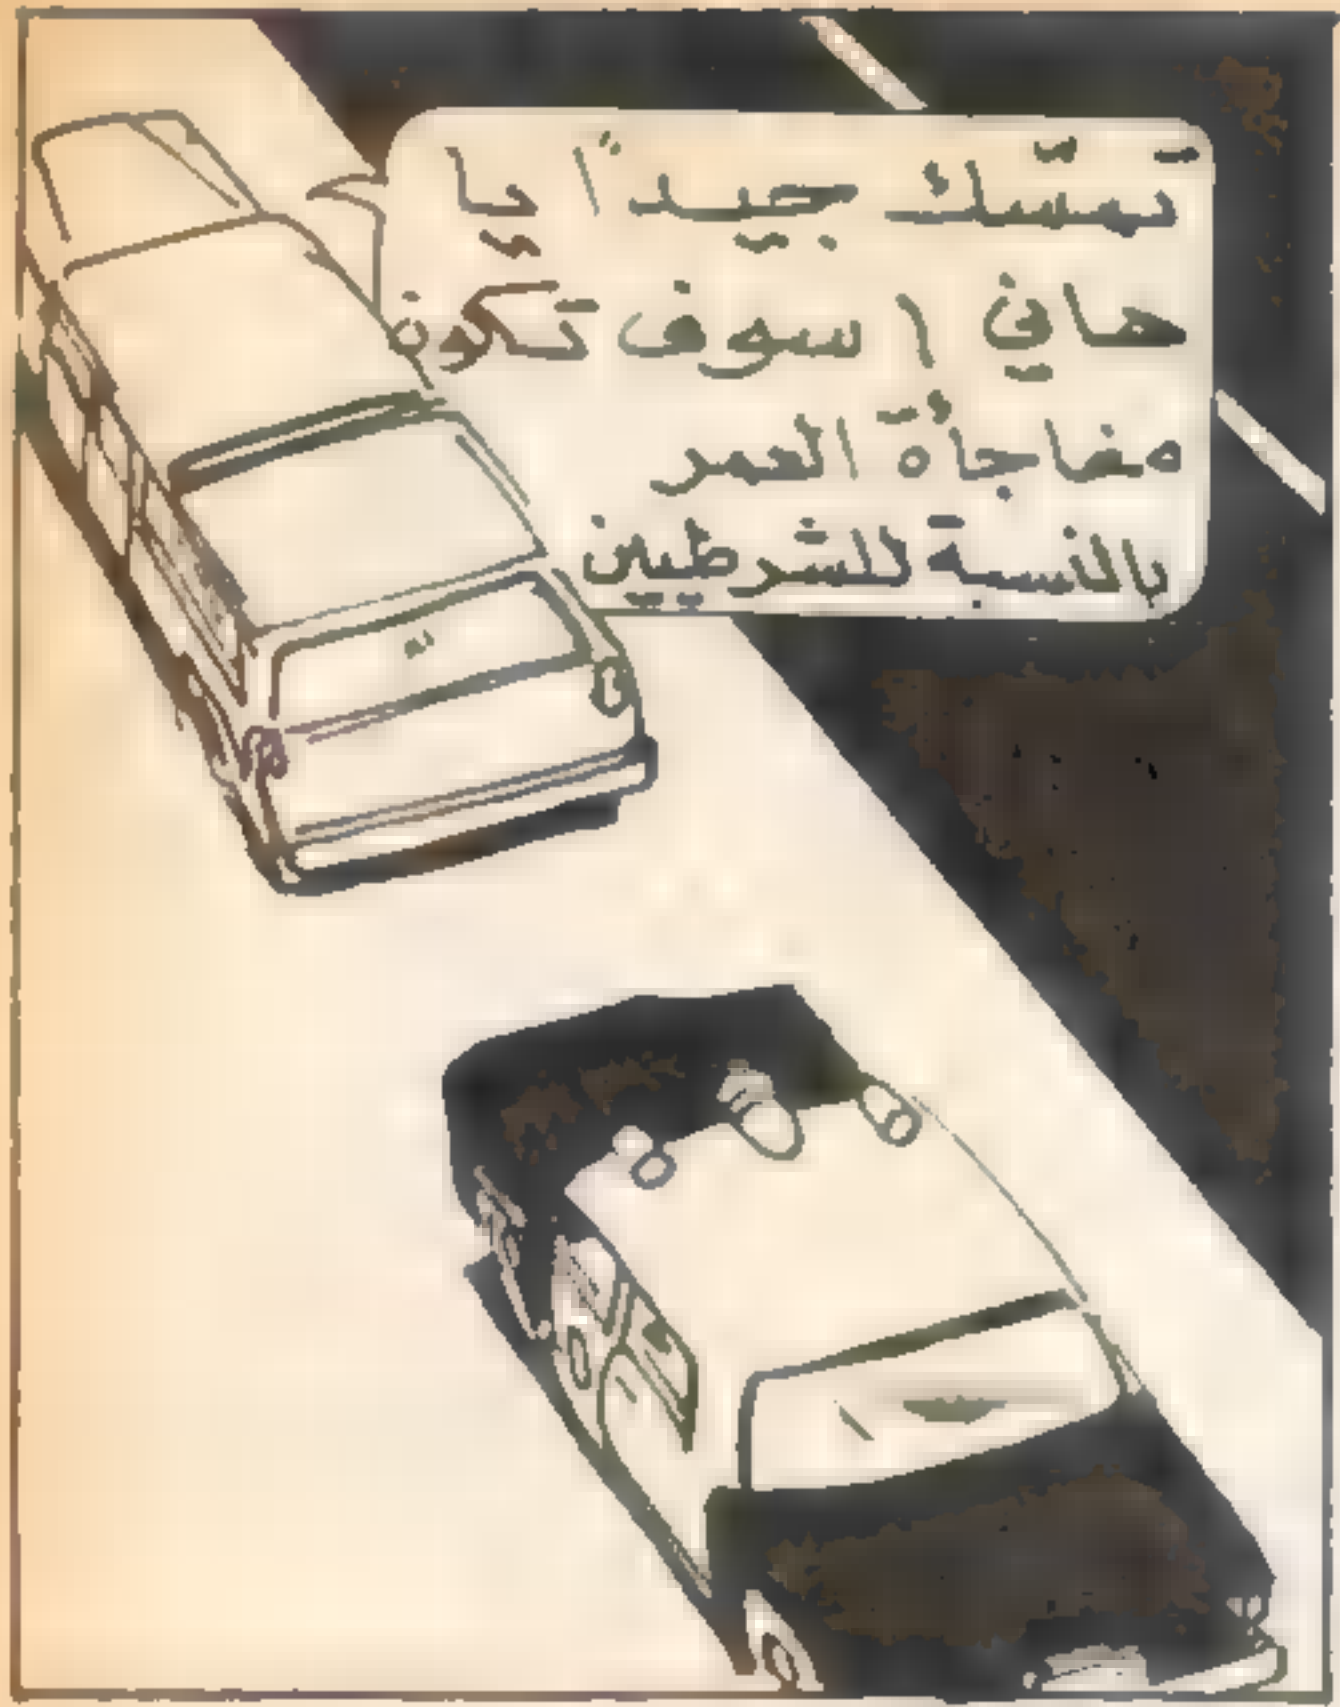 تمسّك جيداً يا
هاني ! سوف تكون
مفاجأة العمر
بالنسبة للشرطيين